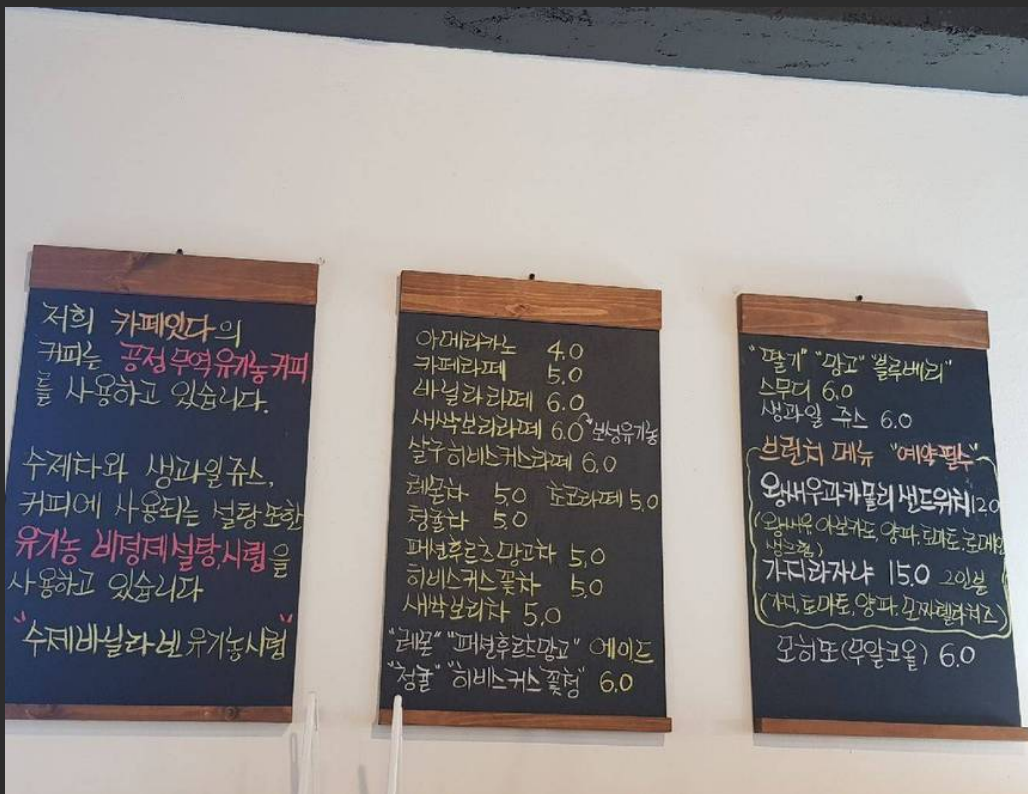 저희 카페잇다의
커피는 공정무역유기농커피
를 사용하고 있습니다.
수제차와 생과일쥬스,
커피에 사용되는 설탕 또한
유기농 비정제설탕,시럽을
사용하고 있습니다
"수제바닐라빈 유기농시럽"
아메리카노 4.0
카페라떼 5.0
바닐라라떼 6.0
새싹보리라떼 6.0 "보성유기농
살구히비스커스라떼 6.0
레몬차 5.0 초코라떼 5.0
청귤차 5.0
패션후르츠망고차 5.0
히비스커스 꽃차 5.0
새싹보리차 5.0
"레몬" "패션후르츠망고" 에이드
"청귤" "히비스커스 꽃청" 6.0
"딸기" "망고" "블루베리"
스무디 6.0
생과일 쥬스 6.0
브런치 메뉴 "예약필수"
왕새우과카몰리 샌드위치 12.0
(왕새우, 아보카도, 양파, 토마토, 로메인
생크림)
가지라자냐 15.0 2인분
(가지, 토마토, 양파, 모짜렐라치즈)
모히또(무알코올) 6.0